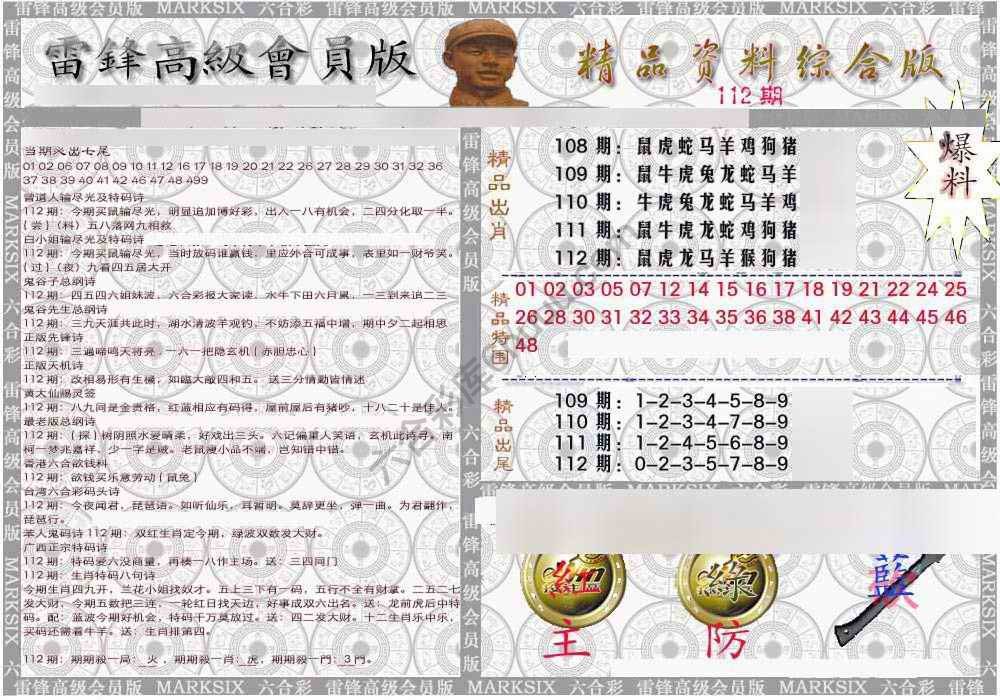 雷锋高级会员版 MARKSIX 六合彩 雷锋高级会员版 MARKSIX 六合彩 雷锋高级会员版 MARKSIX 六合彩 雷锋高级
雷鋒高級會員版
精品资料综合版
112 期
爆料
当期灵出七尾
01 02 06 07 08 09 10 11 12 16 17 18 19 20 21 22 26 27 28 29 30 31 32 36
37 38 39 40 41 42 46 47 48 499
曾道人输尽光及特码诗
112 期：今期买鼠输尽光，明显追加博好彩，出入一八有机会，二四分化取一半。
{ 尝 }（料）五八落网九相救
白小姐输尽光及特码诗
112 期：今期买鼠输尽光，当时放码谁赢钱，里应外合可成事，表里如一财爷笑。
{ 过 }（夜）九看四五居大开
鬼谷子总纲诗
112 期：四五四六姐妹波，六合彩报大家读，水牛下田六月累，一三到来追二三
鬼谷先生总纲诗
112 期：三九天涯共此时，湖水清波羊观钓，不奶添五福中增，期中夕二起相思
正版先锋诗
112 期：三遍啼鸣天将亮，一六一把隐玄机 { 赤胆忠心 }
正版天机诗
112 期：改相易形有生機，如臨大敵四和五。 送三分情勤皆情述
黄大仙赐灵签
112 期：八九同是金贵格，红蓝相应有码得，屋前屋后有猪吵，十八二十是佳人。
最老版总纲诗
112 期：{ 探 } 树阴照水爱晴柔，好戏出三头。六记偏重人笑语，玄机此诗寻。南
柯一梦兆嘉祥，少一字是贼。老鼠搜小品不端，岂知错中错。
香港六合欲钱料
112 期：欲钱买乐意劳动 { 鼠兔 }
台湾六合彩码头诗
112 期：今夜闻君，琵琶语。如听仙乐，耳暂明。莫辞更坐，弹一曲。为君翻作，
琵琶行。
本人鬼码诗 112 期：双红生肖定今期，绿波双数发大财。
广西正宗特码诗
112 期：特码爱六没商量，再楼一八作主场。送：三四同门
112 期：生肖特码八句诗
今期生肖四九开，兰花小姐找奴才。五上三下有一码，五行不全有财拿。二五二七
发大财，今期五数把三连，一轮红日找天边，好事成双六出名。送：龙前虎后中特
码。配：蓝波今期好机会，特码千万莫放过。送：四二发大财。十二生肖乐中乐，
买码还需看牛羊。送：生肖排第四。
112 期：期期殺一局：火 ，期期殺一肖：虎，期期殺一門：3 門。
精品出肖
108 期：鼠虎蛇马羊鸡狗猪
109 期：鼠牛虎兔龙蛇马羊
110 期：牛虎兔龙蛇马羊鸡
111 期：鼠牛虎龙蛇鸡狗猪
112 期：鼠虎龙马羊猴狗猪
精品特围
01 02 03 05 07 12 14 15 16 17 18 19 21 22 24 25
26 28 30 31 32 33 34 35 36 38 41 42 43 44 45 46
48
精品出尾
109 期：1-2-3-4-5-8-9
110 期：1-2-3-4-7-8-9
111 期：1-2-4-5-6-8-9
112 期：0-2-3-5-7-8-9
紅
綠
藍
主
防
雷锋高级会员版 MARKSIX 六合彩 雷锋高级会员版 MARKSIX 六合彩 雷锋高级会员版 MARKSIX 六合彩 雷锋高级